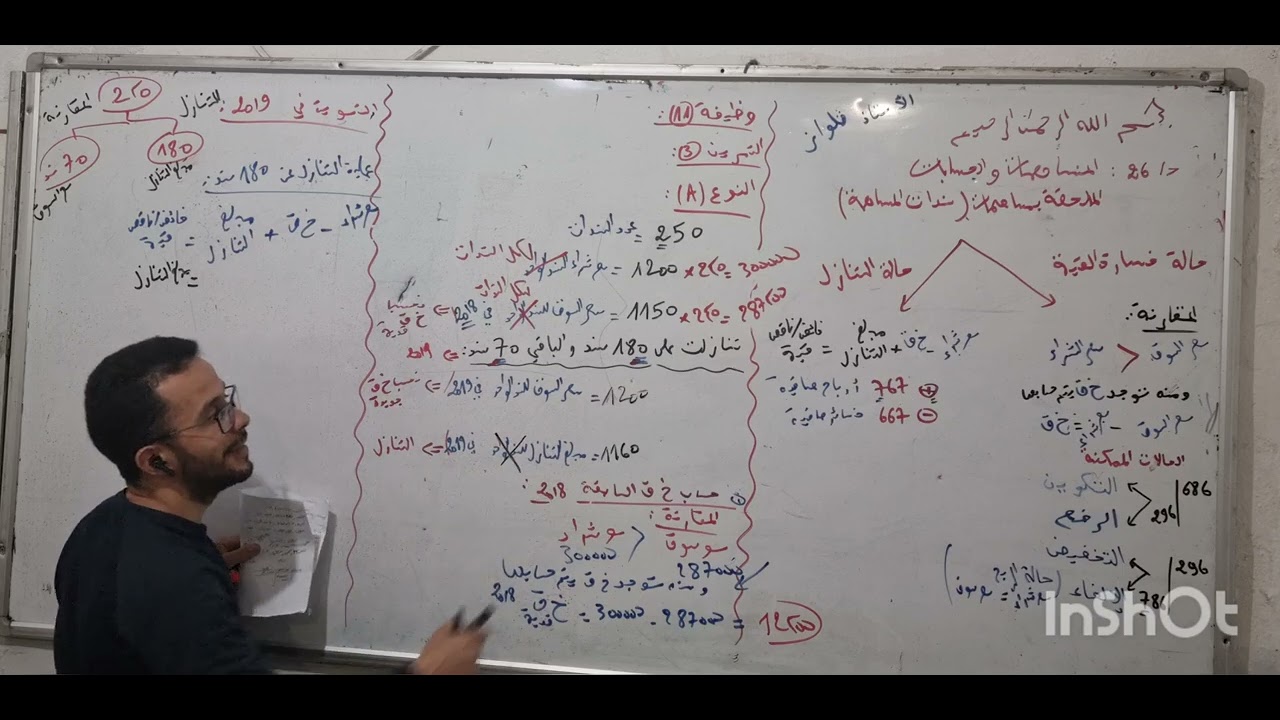 بسم الله الرحمن الرحيم
الأستاذ فلواز
ح/ 26 : المساهمات والحسابات
الملحقة بمساهمات (سندات المساهمة)
حالة خسارة القيمة
حالة التنازل
المقارنة:
سعر السوق < سعر الشراء
ومنه توجد خ ق يتم حسابها
الحالات الممكنة
686
296
التكوين
الرفع
296
786
التخفيض
الإلغاء (حالة الربح
سعر الشراء - خ ق + مبلغ التنازل = فائض/ناقص قيمة
767 أرباح صافية ⊕
667 خسائر صافية ⊖
وظيفة (11):
التمرين (3):
النوع (A)
250 عدد السندات
سعر شراء = 1200 × 250 = 300000
لكل السندات
سعر السوق في 2018 = 1150 × 250 = 287500
لكل السندات
خ ق قديمة
تنازلت على 180 سند والباقي 70 سند: 2019
1200 = سعر السوق للسند الواحد في 2019
نحسب خ ق جديدة
1160 = مبلغ التنازل في 2019
التنازل
① حساب خ ق السابقة 2018:
المقارنة:
سعر سوق < سعر شراء
287500
300000
ومنه توجد خ ق يتم حسابها
خ ق قديمة 2018 = 300000 - 287500 = 12500
التسوية في 2019:
250
للتنازل
المقارنة
180
مبلغ التنازل
70 سند
سعر السوق
عملية التنازل عن 180 سند:
سعر شراء - خ ق + مبلغ التنازل = فائض/ناقص قيمة
= مبلغ التنازل
InShOt